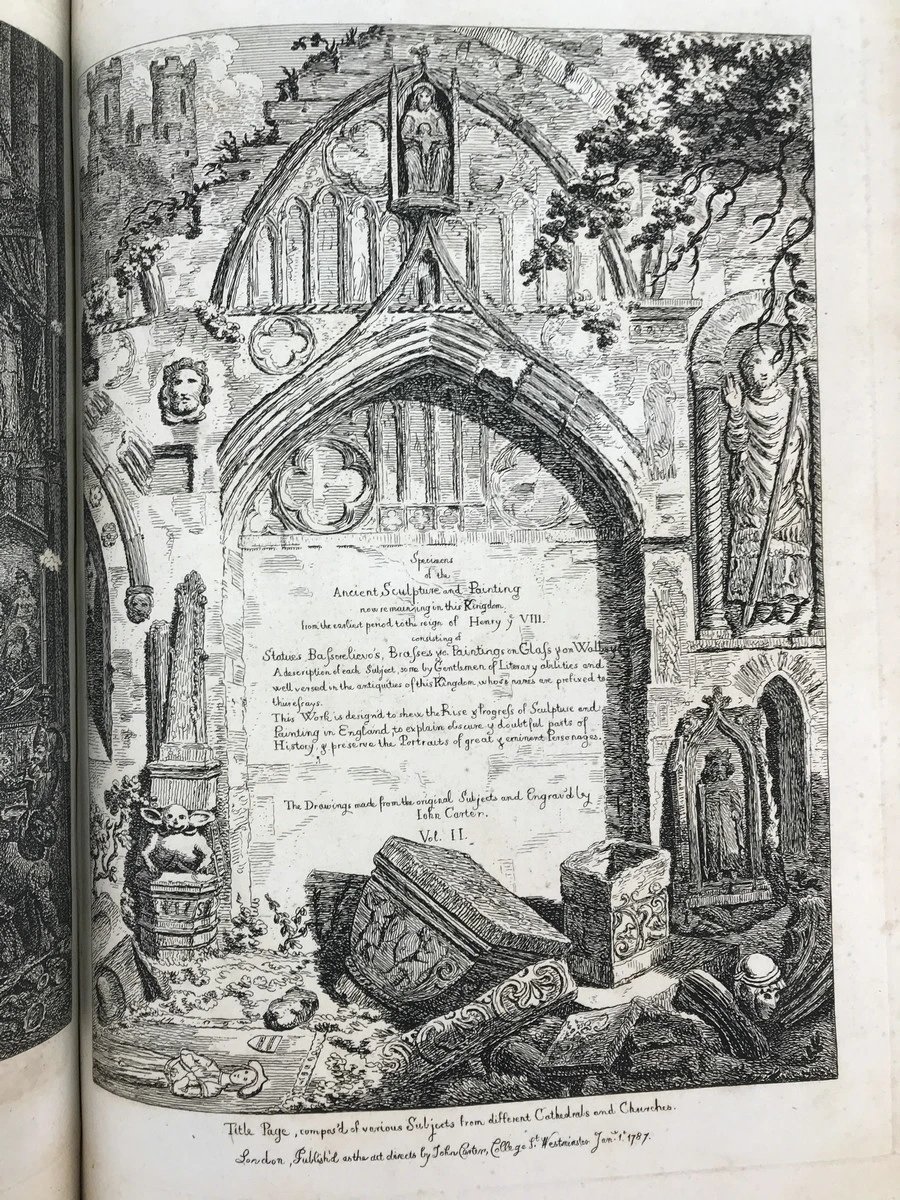 Specimens
of the
Ancient Sculpture and Painting
now remaining in this Kingdom
from the earliest period to the reign of Henry ye VIII.
consisting of
Statues, Bassorelievo's, Brasses &c. Paintings on Glass & on Wall
A description of each Subject, some by Gentlemen of Literary abilities and
well versed in the antiquities of this Kingdom whose names are prefixed to
their essays.
This Work is design'd to shew the Rise & Progress of Sculpture and
Painting in England, to explain obscure & doubtful parts of
History, & preserve the Portraits of great & eminent Personages.
The Drawings made from the original Subjects and Engrav'd by
Iohn Carter.
Vol. II.
Title Page, compos'd of various Subjects from different Cathedrals and Churches.
London, Publish'd as the act directs by John Carter, College St. Westminster Jany. 1st. 1787.